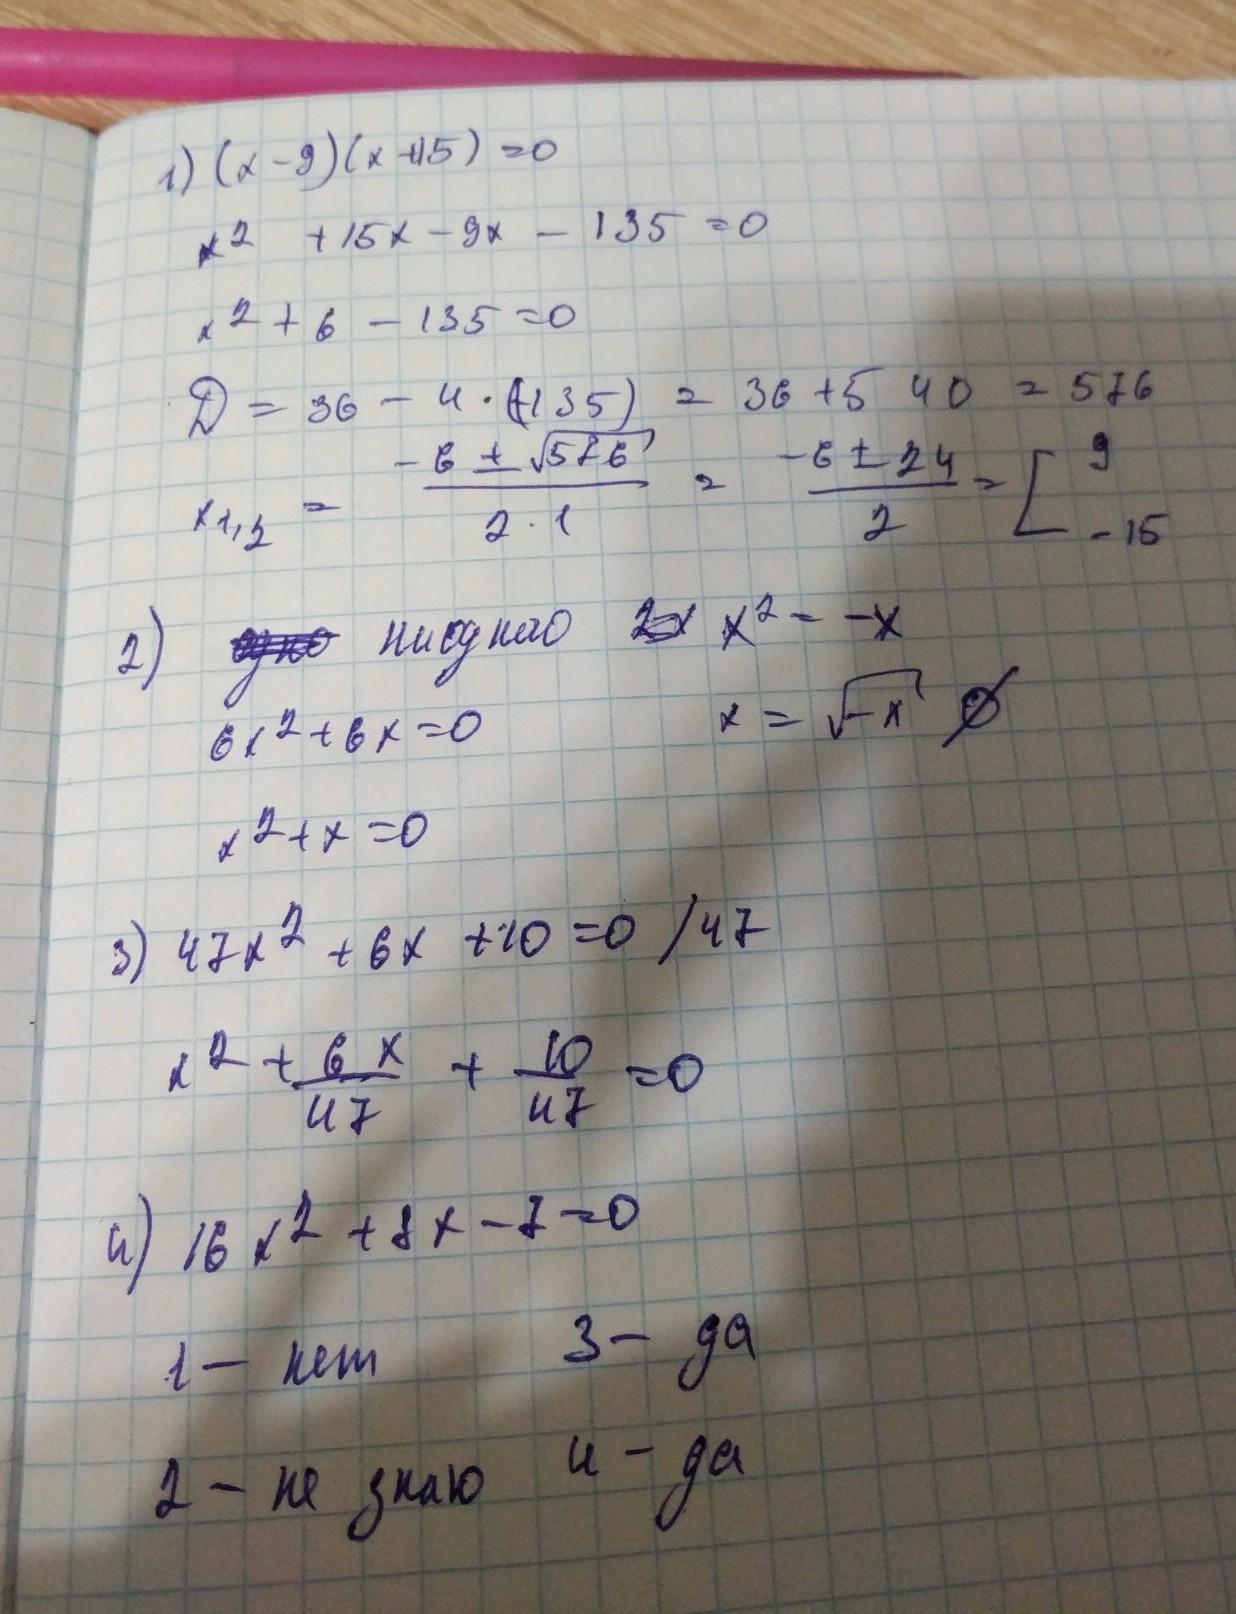 1) (x-9)(x+15)=0
x² +15x-9x-135=0
x²+6-135=0
D=36-4·(-135)=36+540=576
x1,2 = (-6±√576)/(2·1) = (-6±24)/2 = [ 9
-15
2) ниодно x²=-x
6x²+6x=0 x=√-x ∅
x²+x=0
3) 47x²+6x+10=0 /47
x²+6x/47+10/47=0
4) 16x²+8x-7=0
1 - нет 3 - да
2 - не знаю 4 - да